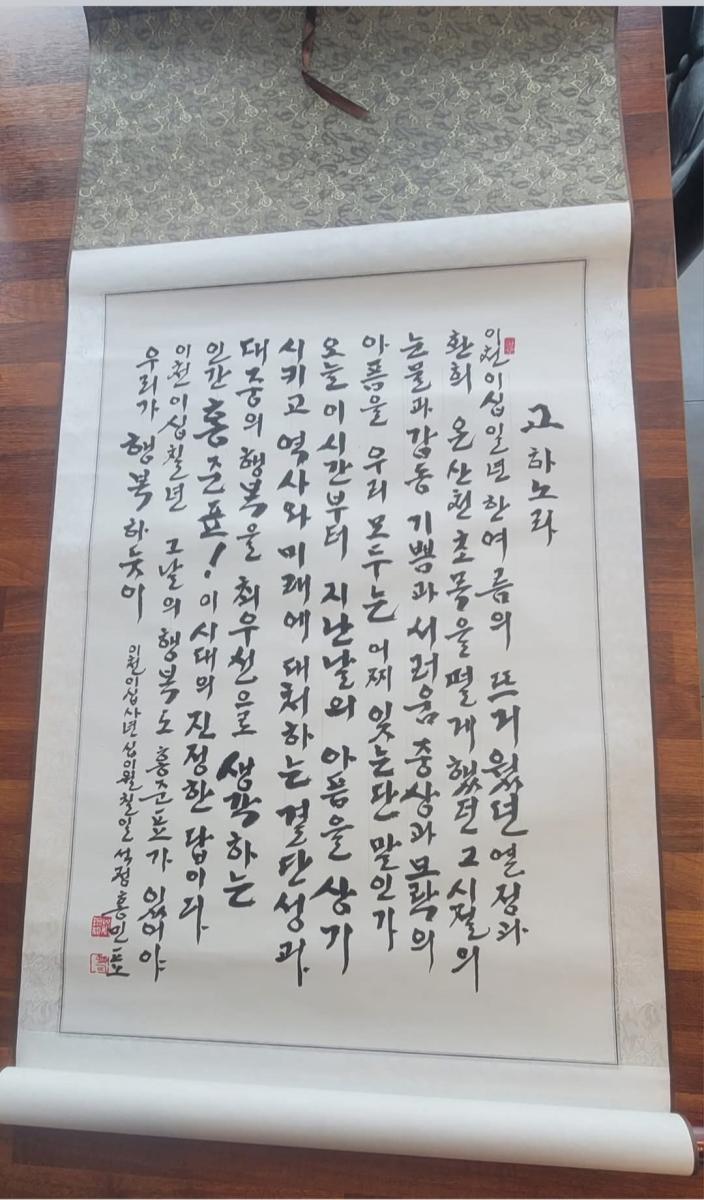 고하노라
이천이십일년 한여름의 뜨거웠던 열정과
환희 온 산천초목을 떨게 했던 그 시절의
눈물과 감동 기쁨과 서러움 중상과 모략의
아픔을 우리 모두는 어찌 잊는단 말인가
오늘 이 시간부터 지난날의 아픔을 상기
시키고 역사와 미래에 대처하는 결단성과
대중의 행복을 최우선으로 생각하는
인간 홍준표! 이 시대의 진정한 답이다
이천이십칠년 그날의 행복도 홍준표가 있어야
우리가 행복하듯이
이천이십사년 십이월 칠일 석정 홍민표